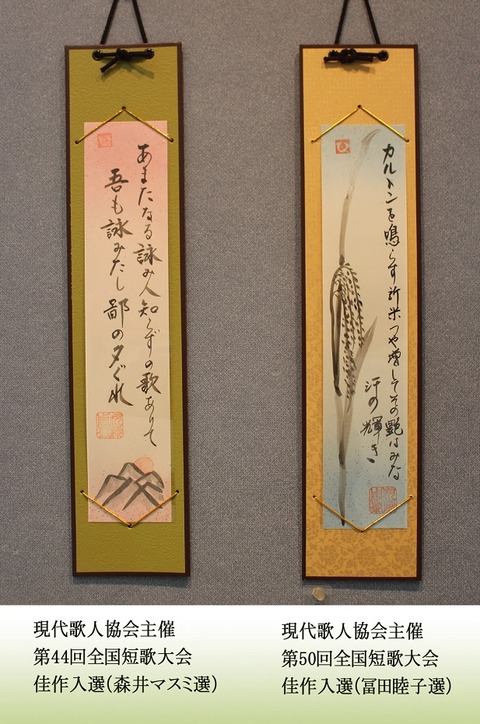 あまたなる詠み人知らずの歌ありて
吾も詠みたし鄙の夕ぐれ
カルトンを鳴らす新米つや増してその艶はみな
汗の輝き
現代歌人協会主催
第44回全国短歌大会
佳作入選(森井マスミ選)
現代歌人協会主催
第50回全国短歌大会
佳作入選(冨田睦子選)